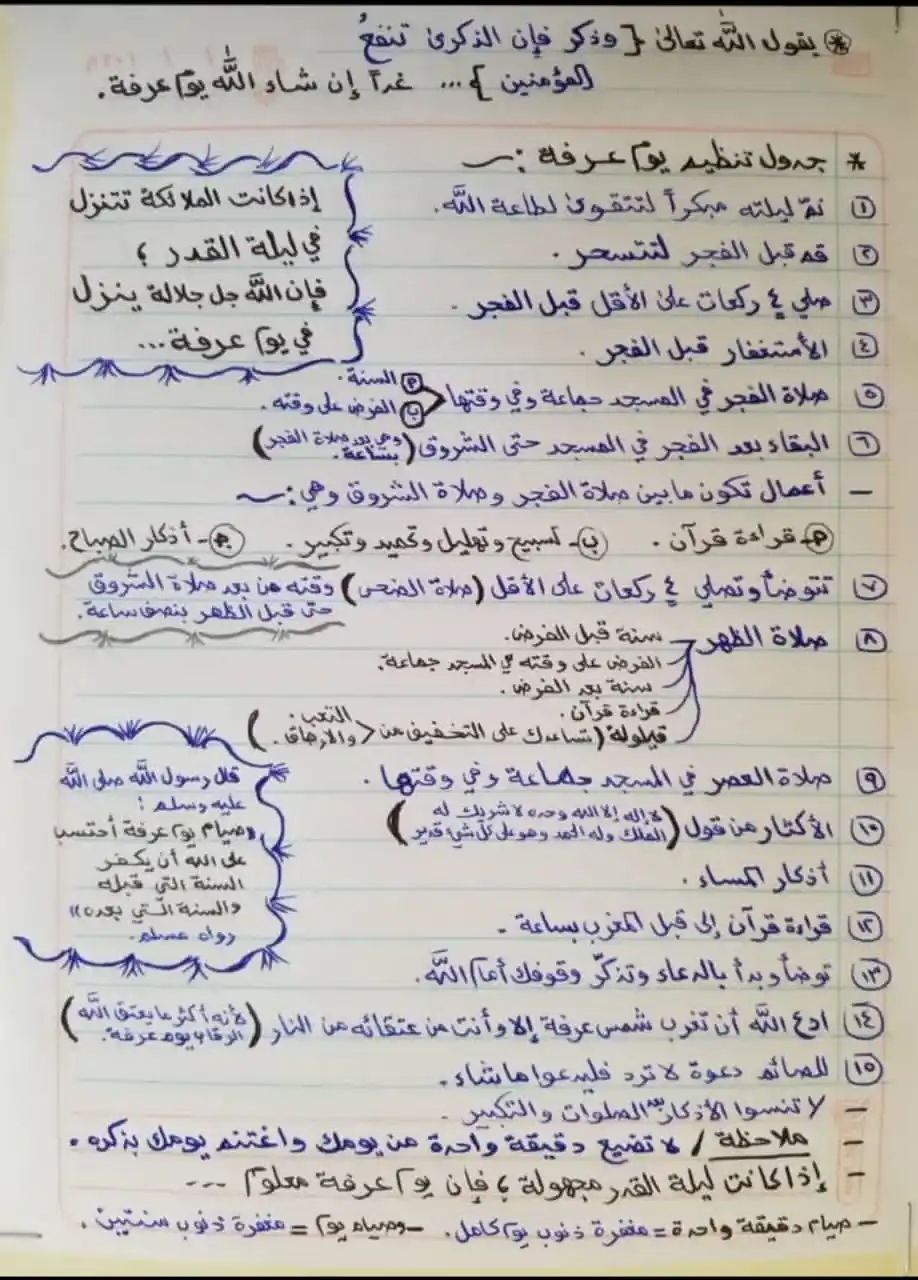 * يقول الله تعالى { وذكر فإن الذكرى تنفعُ
المؤمنين } ... غداً إن شاء الله يوم عرفة.
* جدول تنظيم يوم عرفة :ــ
١ نمْ ليلته مبكراً لتتقوى لطاعة الله.
٢ قم قبل الفجر لتتسحر.
٣ صلي ٤ ركعات على الأقل قبل الفجر.
٤ الأستغفار قبل الفجر.
إذا كانت الملائكة تتنزل
في ليلة القدر ؛
فإن الله جل جلاله ينزل
في يوم عرفة...
٥ صلاة الفجر في المسجد جماعة وفي وقتها
أ السنة.
ب الفرض على وقته.
٦ البقاء بعد الفجر في المسجد حتى الشروق (وهي بعد صلاة الفجر
بساعة.)
- أعمال تكون ما بين صلاة الفجر وصلاة الشروق وهي :ــ
أ- قراءة قرآن. ب- تسبيح وتهليل وتحميد وتكبير. ج- أذكار الصباح.
٧ تتوضأ وتصلي ٤ ركعات على الأقل (صلاة الضحى) وقته من بعد صلاة الشروق
حتى قبل الظهر بنصف ساعة.
٨ صلاة الظهر
سنة قبل الفرض.
الفرض على وقته في المسجد جماعة.
سنة بعد الفرض.
قراءة قرآن.
قيلولة (تساعدك على التخفيف من < التعب.
والإرهاق.)
٩ صلاة العصر في المسجد جماعة وفي وقتها.
١٠ الأكثار من قول (لا إله إلا الله وحده لا شريك له
الملك وله الحمد وهو على كل شيء قدير)
١١ أذكار المساء.
١٢ قراءة قرآن إلى قبل المغرب بساعة.
قال رسول الله صلى الله
عليه وسلم :
«صيام يوم عرفة أحتسب
على الله أن يكفر
السنة التي قبله
والسنة التي بعده»
رواه مسلم.
١٣ توضأ وبدأ بالدعاء وتذكّر وقوفك أمام الله.
١٤ ادع الله أن تغرب شمس عرفة إلا وأنت من عتقائه من النار (لأنه أكثر ما يعتق الله
الرقاب يوم عرفة.)
١٥ للصائم دعوة لا ترد فليدعوا ما شاء.
- لا تنسوا الأذكار بعد الصلوات والتكبير.
- ملاحظة / لا تضيع دقيقة واحدة من يومك واغتنم يومك بذكره.
- إذا كانت ليلة القدر مجهولة ؛ فإن يوم عرفة معلوم ...
- صيام دقيقة واحدة = مغفرة ذنوب يوم كامل. - وصيام يوم = مغفرة ذنوب سنتين.